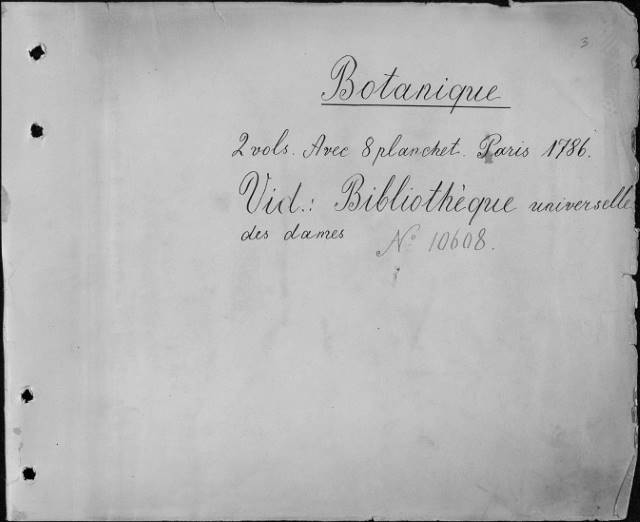 3
Botanique
2 vols. Avec 8 planchet. Paris 1786.
Vid.: Bibliothèque universelle
des dames Nº 10608.